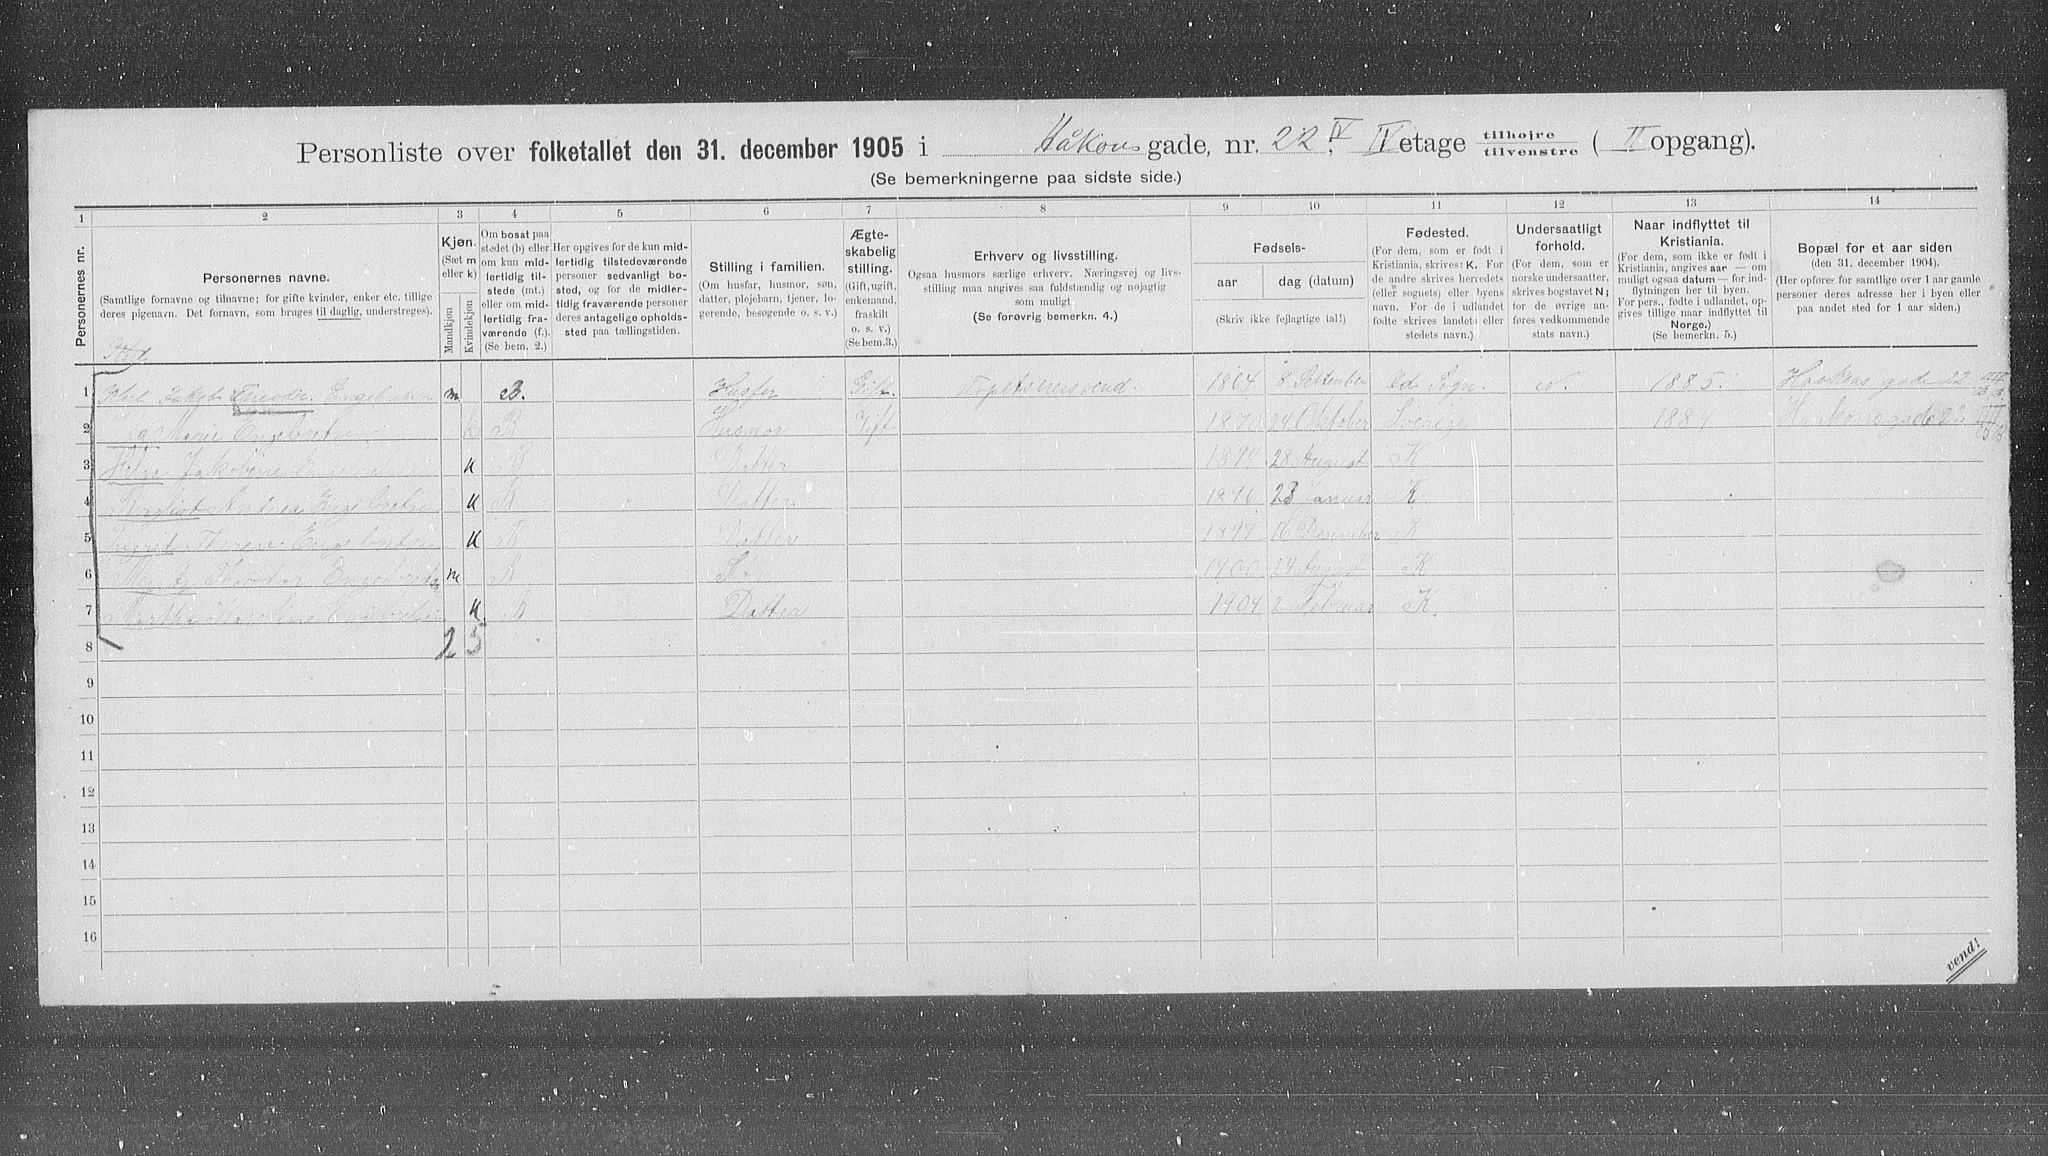 Personliste over folketallet den 31. december 1905 i Håkons gade, nr. 22, IV IV etage tilhøjre tilvenstre ( II opgang).
(Se bemerkningerne paa sidste side.)
1 2 3 4 5 6 7 8 9 10 11 12 13 14
Personernes nr.
Personernes navne.
(Samtlige fornavne og tilnavne; for gifte kvinder, enker etc. tillige
deres pigenavn. Det fornavn, som bruges til daglig, understreges).
Kjøn.
(Sæt m
eller k)
Mandkjøn
Kvindekjøn
Om bosat paa
stedet (b) eller
om kun mid-
lertidig til-
stede (mt.)
eller om mid-
lertidig fra-
værende (f.).
(Se bem. 2.)
Her opgives for de kun mid-
lertidig tilstedeværende
personer sedvanligt bo-
sted, og for de midler-
tidig fraværende personer
deres antagelige opholds-
sted paa tællingstiden.
Stilling i familien.
(Om husfar, husmor, søn,
datter, plejebarn, tjener, lo-
gerende, besøgende o. s. v.)
Ægte-
skabelig
stilling.
(Gift, ugift,
enkenand,
fraskilt
o. s. v.)
(Se bem.3.)
Erhverv og livsstilling.
Ogsaa husmors særlige erhverv. Næringsvej og livs-
stilling maa angives saa fuldstændig og nøjagtig
som muligt
(Se forøvrig bemerkn. 4.)
Fødsels-
aar
dag (datum)
(Skriv ikke fejlagtige tal!)
Fødested.
(For dem, som er født i
Kristiania, skrives: K. For
de andre skrives herredets
(eller sognets) eller byens
navn. For de i udlandet
fødte skrives landets eller
stedets navn.)
Undersaatligt
forhold.
(For dem, som er
norske undersaatter,
skrives bogstavet N;
for de øvrige an-
føres vedkommende
stats navn.)
Naar indflyttet til
Kristiania.
(For dem, som ikke er født i
Kristiania, angives aar — om
muligt ogsaa datum — for ind-
flytningen her til byen.
For pers., fødte i udlandet, op-
gives tillige naar indflyttet til
Norge.)
(Se bemerkn. 5.)
Bopæl for et aar siden
(den 31. december 1904).
(Her opføres for samtlige over 1 aar gamle
personer deres adresse her i byen eller
paa andet sted for 1 aar siden.)
1 Jakob Theodor Engebretsen m B. Husfar Gift. 1864 8 September N. 1885. gade 22
2 Marie Engebretsen k B Husmor Gift 1870 Oktober Sverige 1884 Haakonsgade 22
3 Jakobine Engebretsen k B Datter 1894 28 August K
4 Andrea Engebretsen k B Datter 1896 23 Januar K
5 Engebretsen k B Datter 1897 16 Desember K
6 Theodor Engebretsen m B 1900 24 August K
7 Martha Engebretsen k B Datter 1904 2 Februar K.
8 2 5
9
10
11
12
13
14
15
16
vend!